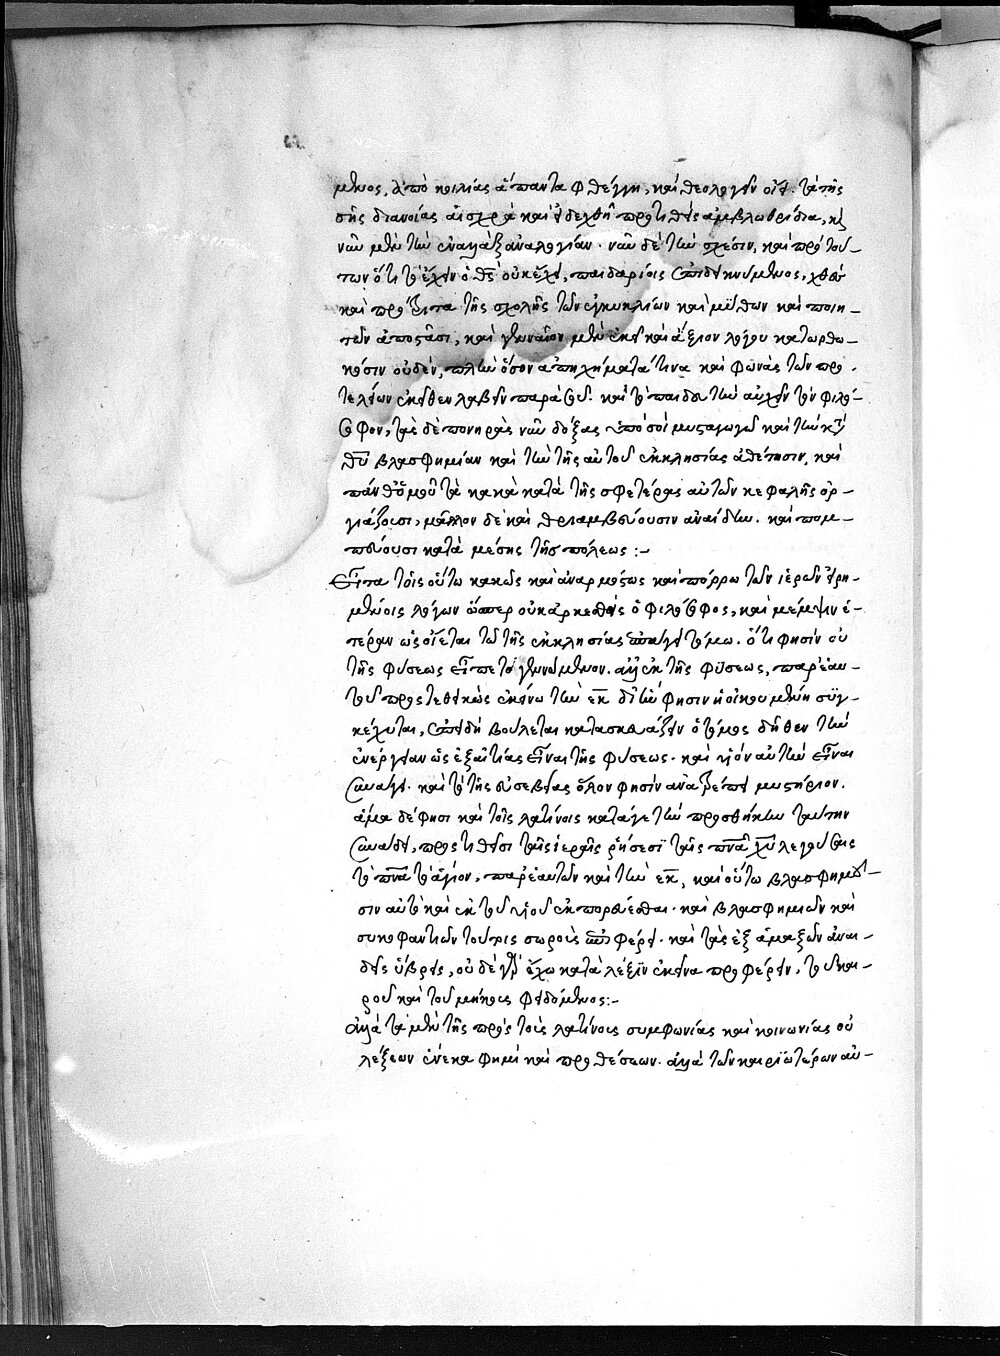 μενος, ἀπὸ κοιλίας ἅπαντα φθέγγη, καὶ θεολογεῖν οἴει. τὰ τῆς
σῆς διανοίας αἰσχρὰ καὶ ἐδεχθῆ προτιθεὶς ἀμβλωθρίδια, καὶ
νῦν μὲν τὴν ἐναλλὰξ ἀναλογίαν. νῦν δὲ τὴν σχέσιν, καὶ πρὸ τού-
των ὅτι τὸ ἔχειν ὁ θς οὐκ ἔχει, παιδαρίοις ἐπιδεικνύμενος, χθὲς
καὶ πρῴην τὰ τῆς σχολῆς τῶν ἐγκυκλίων καὶ μύθων καὶ ποιη-
τῶν ἀποστᾶσι, καὶ γενναῖον μὲν ἐκεῖ καὶ ἄξιον λόγου κατωρθω-
κόσιν οὐδὲν, πλὴν ὅσον ἀπηχήματά τινα καὶ φωνὰς τῶν προ-
τελείων ἐκεῖθεν λαβεῖν παρὰ σοῦ. καὶ τὸ παιδευτὴν αὐχεῖν τὸν φιλό-
σοφον, τὰς δὲ πονηρὰς νῦν δόξας ὑπὸ σοὶ μυσταγωγῷ καὶ τὴν κατὰ
θυ βλασφημίαν καὶ τὴν τῆς αὐτοῦ ἐκκλησίας ἀθέτησιν, καὶ
πάνθ' ὁμοῦ τὰ κακὰ κατὰ τῆς σφετέρας αὐτῶν κεφαλῆς ὀρ-
γιάζουσι, μᾶλλον δὲ καὶ θριαμβεύουσιν ἀναίδην. καὶ πομ-
πεύουσι κατὰ μέσης τῆς πόλεως :-
Εἶτα τοῖς οὕτω κακῶς καὶ ἀναρμόστως καὶ πόρρω τῶν ἱερῶν εἰρη-
μένοις λόγων ὥσπερ οὐκ ἀρκεσθεὶς ὁ φιλόσοφος, καὶ μέμψιν ἑ-
τέραν ὡς οἴεται τῷ τῆς ἐκκλησίας ἐπάγει τόμῳ. ὅτι φησὶν οὐ
τῆς φύσεως εἶπε τὸ γεννώμενον. ἀλλ' ἐκ τῆς φύσεως, παρ' ἑαυ-
τοῦ προστεθεικὼς ἐκείνῳ τὴν ἐκ δι' ἣν φησιν ἡ οἰκουμένη συγ-
κέχυται, ἐπειδὴ βούλεται κατασκευάζειν ὁ τόμος δῆθεν τὴν
ἐνέργειαν ὡς ἐξ αἰτίας εἶναι τῆς φύσεως. καὶ υἱὸν αὐτὴν εἶναι
συνάγει. καὶ τὸ τῆς εὐσεβείας ὅλον φησὶν ἀνατρέπει μυστήριον.
ἅμα δέ φησι καὶ τοῖς λατίνοις κατὰ γε τὴν προσθήκην ταύτην
συνᾴδει, προστιθεῖσι ταῖς ἱεραῖς ῥήσεσι ταῖς πνα χυ λεγούσαις
τὸ πνα τὸ ἅγιον, παρ' ἑαυτῶν καὶ τὴν ἐκ, καὶ οὕτω βλασφημοῦ-
σιν αὐτὸ καὶ ἐκ τοῦ υἱοῦ ἐκπορεύεσθαι. καὶ βλασφημιῶν καὶ
συκοφαντιῶν τούτοις σωροὺς ἐπιφέρει. καὶ τὰς ἐξ ἁμαξῶν ἀναι-
δεῖς ὕβρεις, οὐδὲ γὰρ ἔχω κατὰ λέξιν ἐκεῖνα προφέρειν, τοῦ και-
ροῦ καὶ τοῦ μήκους φειδόμενος :-
Ἀλλὰ τὰ μὲν τῆς πρὸς τοὺς λατίνους συμφωνίας καὶ κοινωνίας οὐ
λέξεων ἕνεκα φημὶ καὶ προθέσεων. ἀλλὰ τῶν καιριωτέρων αὐ-